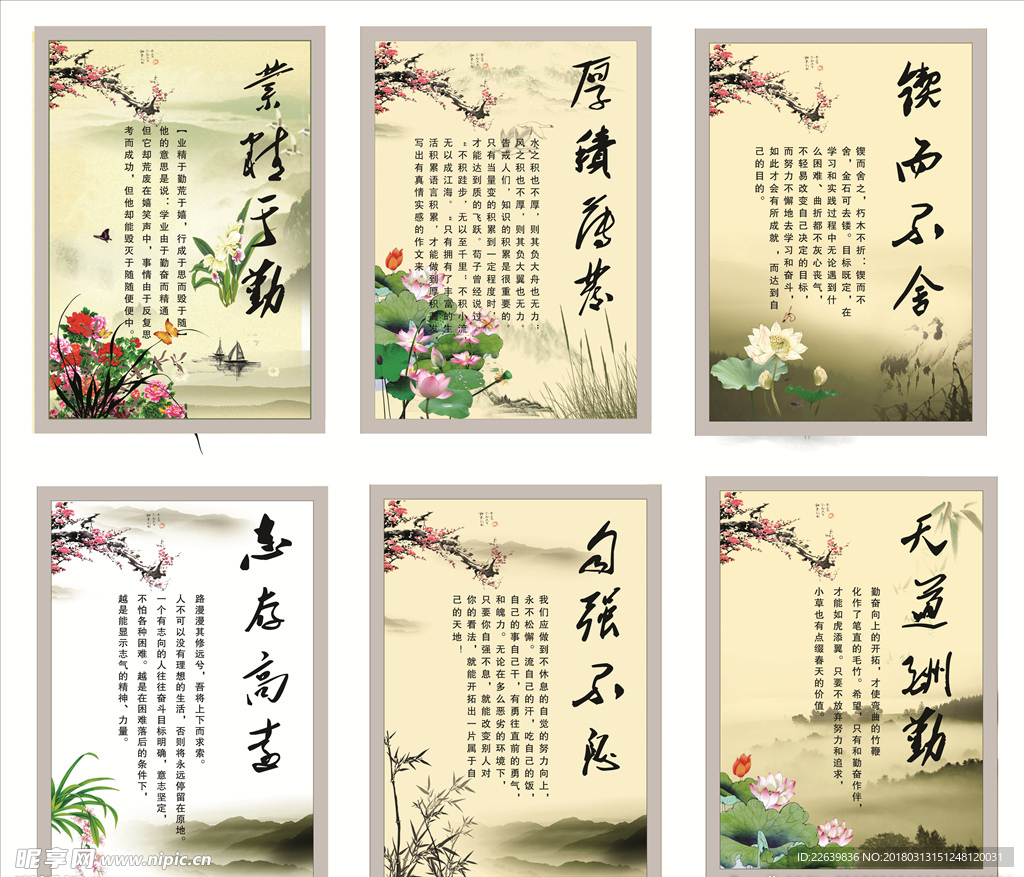 业精于勤
【业精于勤荒于嬉，行成于思而毁于随】
他的意思是说：学业由于勤奋而精通
但它却荒废在嬉笑声中，事情由于反复思
考而成功，但他却能毁灭于随随便便中。
厚积薄发
水之积也不厚，则其负大舟也无力；
风之积也不厚，则其负大翼也无力。
告戒人们，知识的积累是很重要的。
只有当量变的积累到一定程度时，
才能达到质的飞跃。荀子曾经说过
“不积跬步，无以至千里；不积小流
无以成江海。“只有拥有了丰富的生
活积累语言积累，才能做到厚积薄发
写出有真情实感的作文来。
锲而不舍
锲而舍之，朽木不折；锲而不
舍，金石可去镂。目标既定，在
学习和实践过程中无论遇到什
么困难、曲折都不灰心丧气，
不轻易改变自己决定的目标，
而努力不懈地去学习和奋斗，
如此才会有所成就，而达到自
己的目的。
志存高远
路漫漫其修远兮，吾将上下而求索。
人不可以没有理想的生活，否则将永远停留在原地。
一个有志向的人往往奋斗目标明确，意志坚定，
不怕各种困难。越是在困难落后的条件下，
越是能显示志气的精神、力量。
自强不息
我们应做到不休息的自觉的努力向上，
永不松懈。流自己的汗，吃自己的饭，
自己的事自己干，有勇往直前的勇气，
和魄力。无论在多么恶劣的环境下，
只要你自强不息，就能改变别人对
你的看法，就能开拓出一片属于自
己的天地！
天道酬勤
勤奋向上的开拓，才使弯曲的竹鞭
化作了笔直的毛竹。希望，只有和勤奋作伴，
才能如虎添翼。只要不放弃努力和追求，
小草也有点缀春天的价值。
昵享网 www.nipic.cn
ID:22639836 NO:20180313151248120031